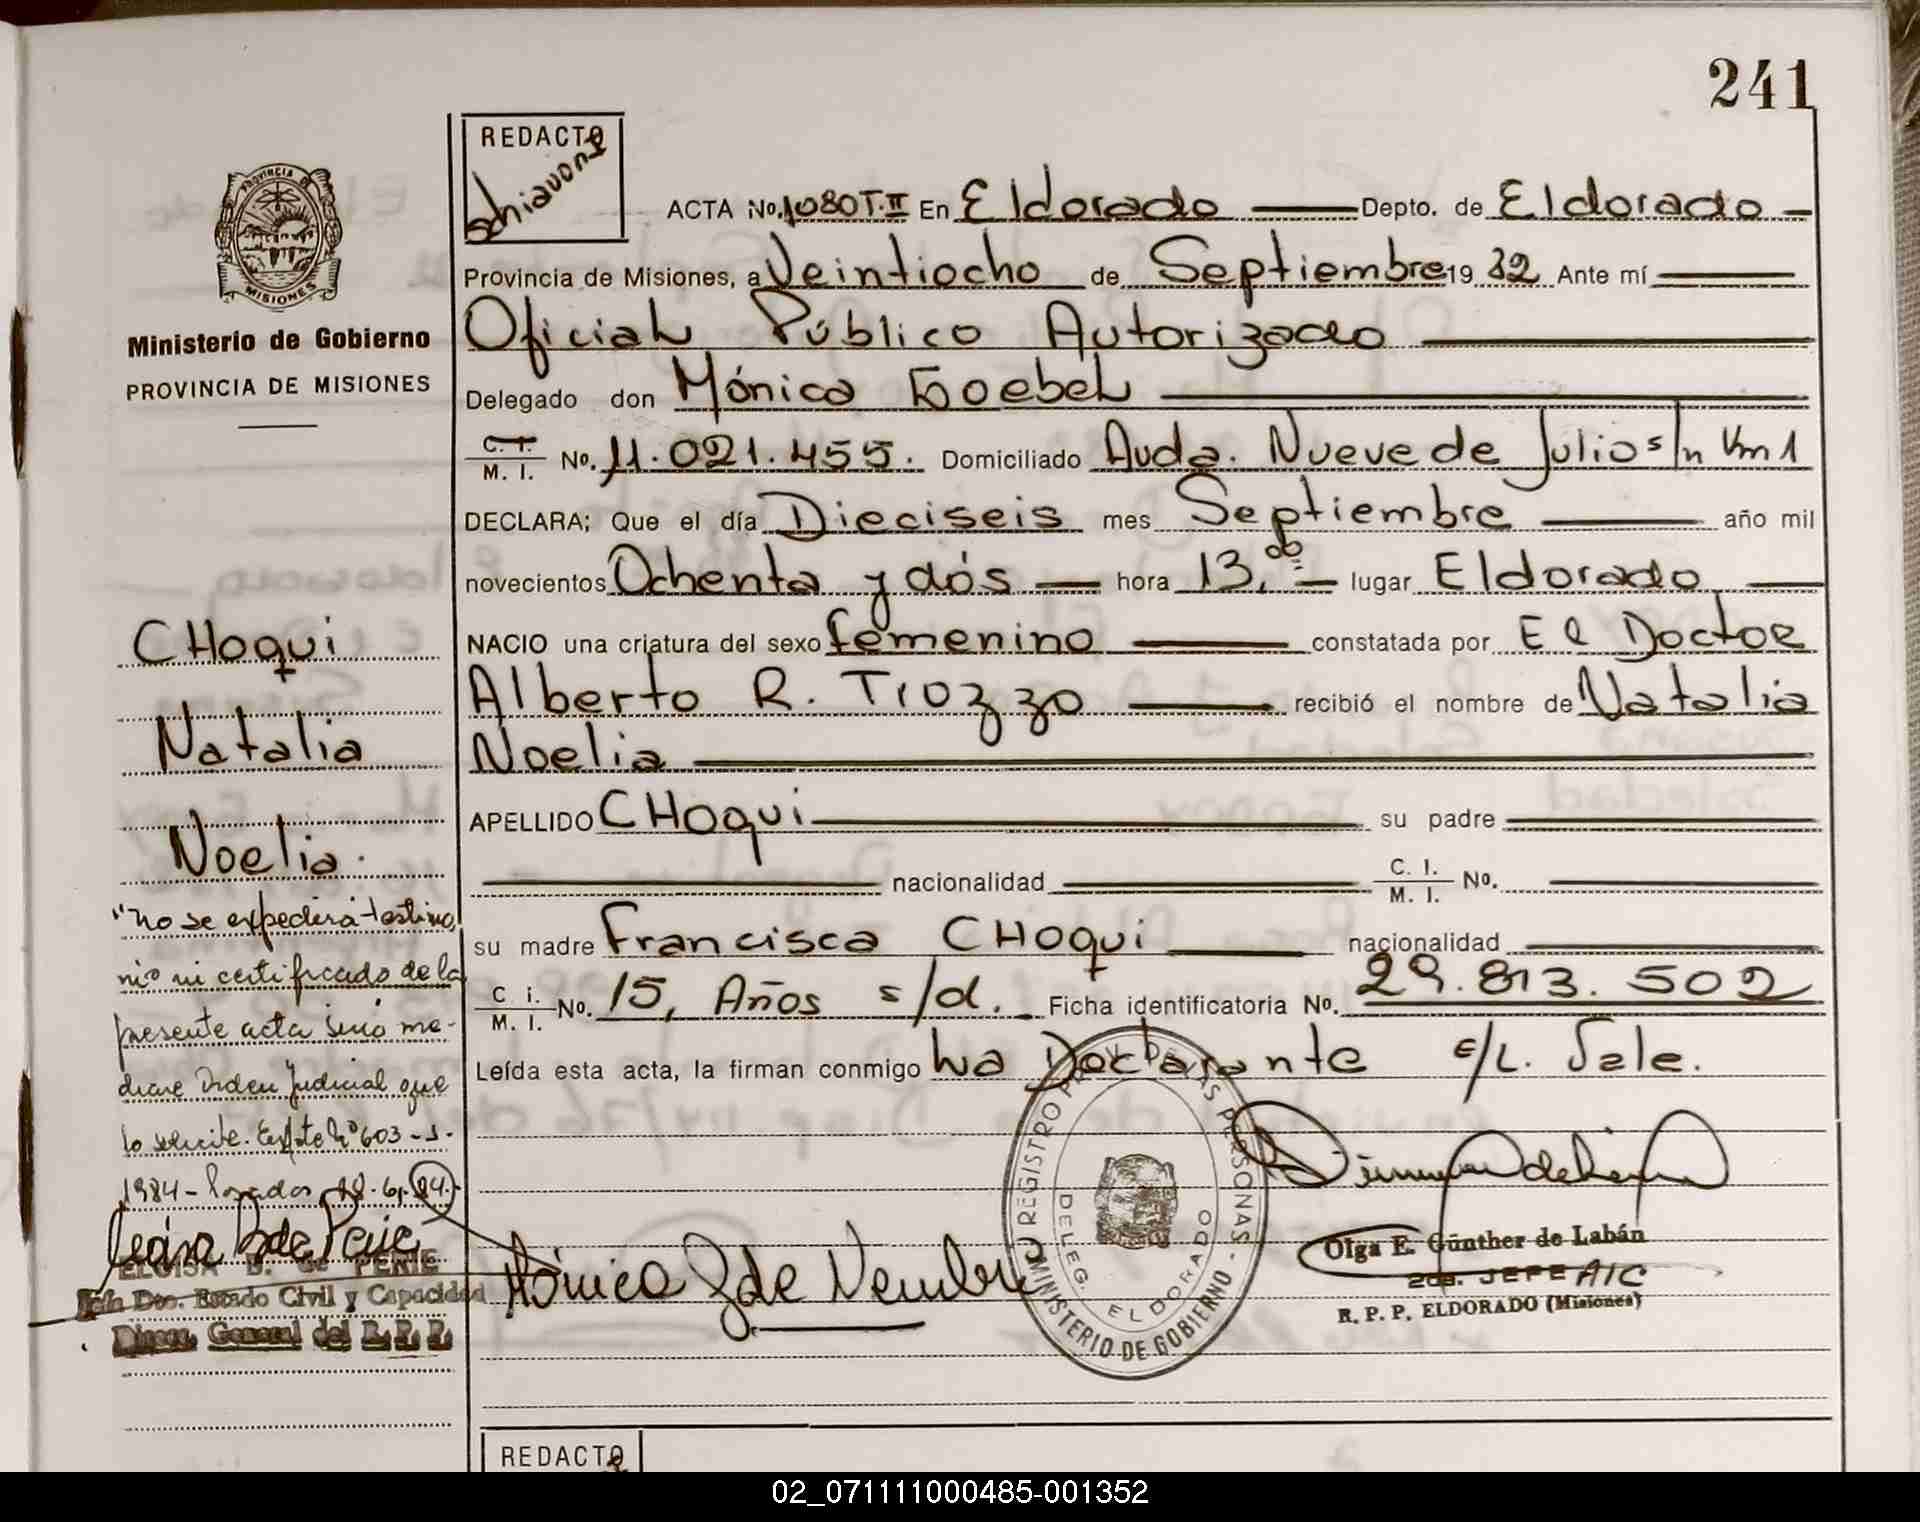 241
REDACTO
Schiavone
PROVINCIA DE
MISIONES
Ministerio de Gobierno
PROVINCIA DE MISIONES
ACTA No. 1080 T.II En Eldorado Depto. de Eldorado
Provincia de Misiones, a Veintiocho de Septiembre 19 82 Ante mí
Oficial Público Autorizado
Delegado don Mónica Goebel
C. I. M. I. No. 11.021.455. Domiciliado Avda. Nueve de Julio s/n Km 1
DECLARA; Que el día Dieciseis mes Septiembre año mil
novecientos Ochenta y dós hora 13,00 lugar Eldorado
NACIO una criatura del sexo femenino constatada por El Doctor
Alberto R. Tiozzo recibió el nombre de Natalia
Noelia
APELLIDO CHoqui su padre
nacionalidad C. I. M. I. No.
su madre Francisca CHoqui nacionalidad
C i. M. I. No. 15, Años s/d. Ficha identificatoria No. 29.813.502
Leída esta acta, la firman conmigo La Declarante E/L. Vale.
CHoqui
Natalia
Noelia.
"no se expedirá testimo
nio ni certificado de la
presente acta sino me-
diare orden judicial que
lo solicite. Expte Nº 603-J-
1984 - Posadas, 18.6.84.
ELOISA B. de PERIE
Jefa Dto. Estado Civil y Capacidad
Direcc. General del R. P. P.
REGISTRO PROV. DE LAS PERSONAS - MINISTERIO DE GOBIERNO
DELEG. ELDORADO
Olga E. Günther de Labán
2da. JEFE A/C
R. P. P. ELDORADO (Misiones)
REDACTO
02_071111000485-001352